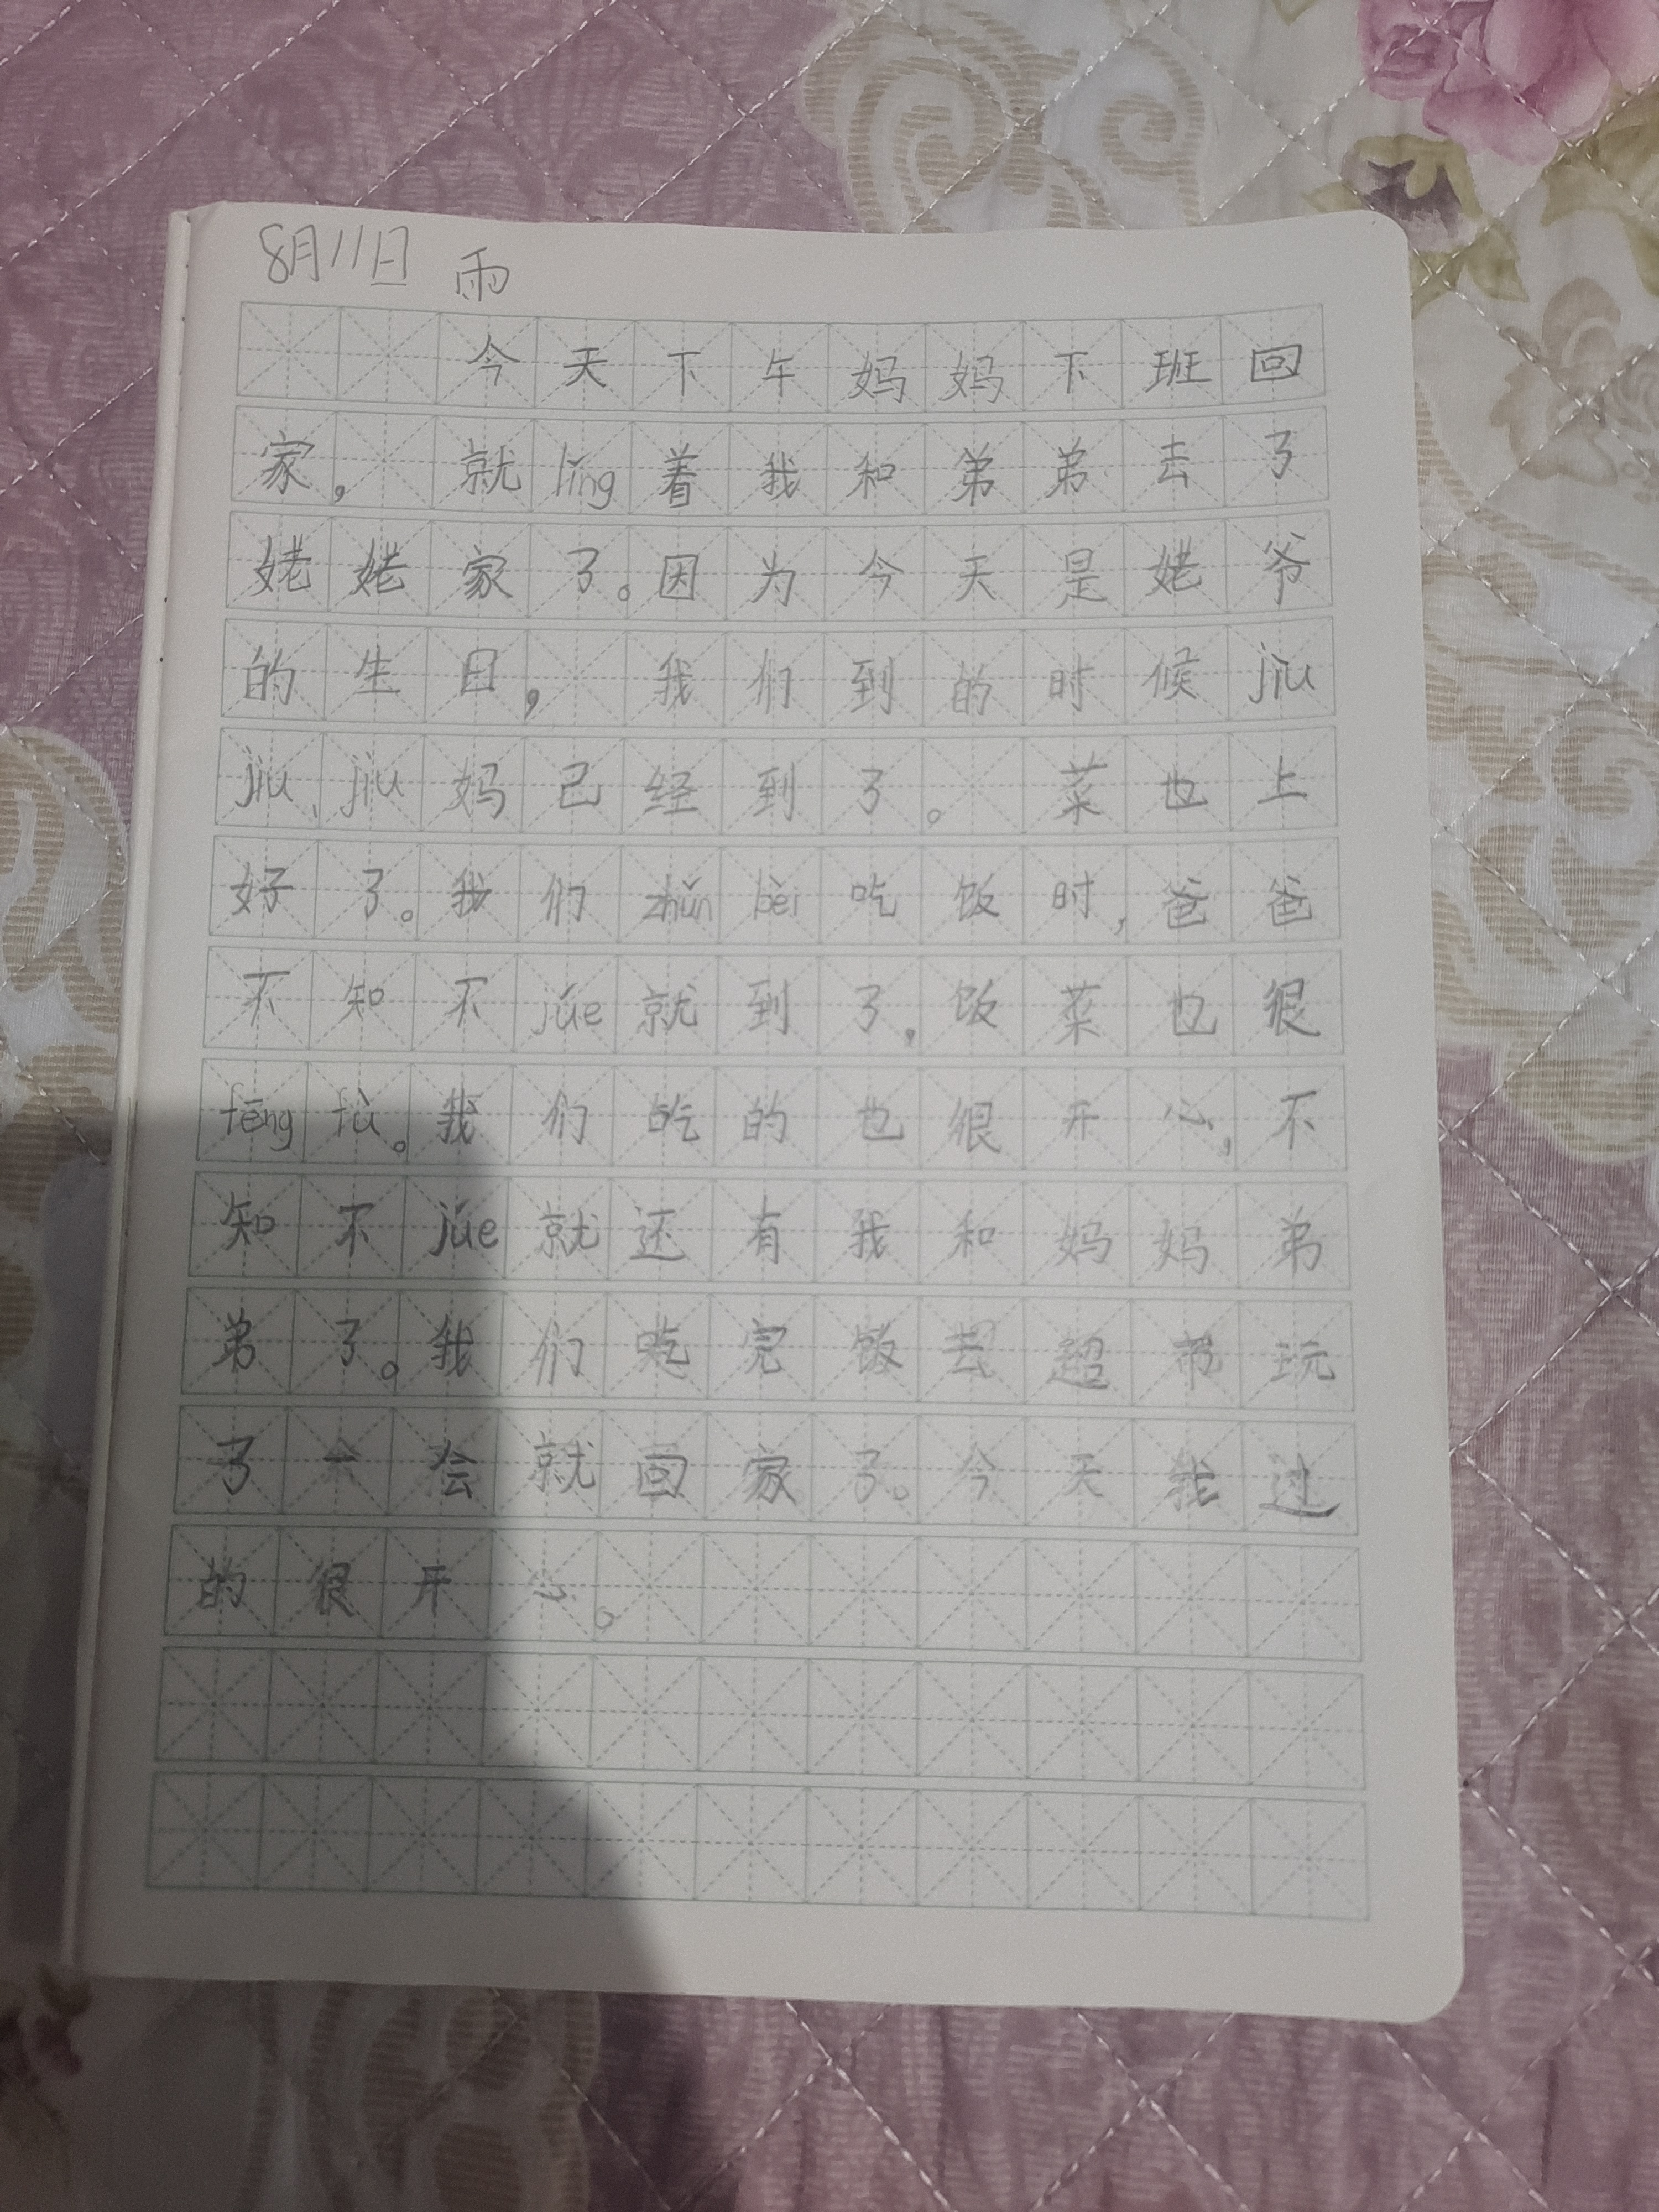 8月11日 雨
今天下午妈妈下班回
家，就lǐng着我和弟弟去了
姥姥家了。因为今天是姥爷
的生日，我们到的时候jiù
jiu、jiù妈已经到了。菜也上
好了。我们zhǔn bèi吃饭时，爸爸
不知不júe就到了，饭菜也很
fēng fù。我们吃的也很开心，不
知不júe就还有我和妈妈弟
弟了。我们吃完饭去超市玩
了一会就回家了。今天我过
的很开心。